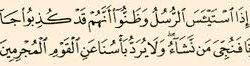 إِذَا ٱسْتَيْـَٔسَ ٱلرُّسُلُ وَظَنُّوٓا۟ أَنَّهُمْ قَدْ كُذِبُوا۟ جَآ
نَا فَنُجِّىَ مَن نَّشَآءُ ۖ وَلَا يُرَدُّ بَأْسُنَا عَنِ ٱلْقَوْمِ ٱلْمُجْرِمِينَ